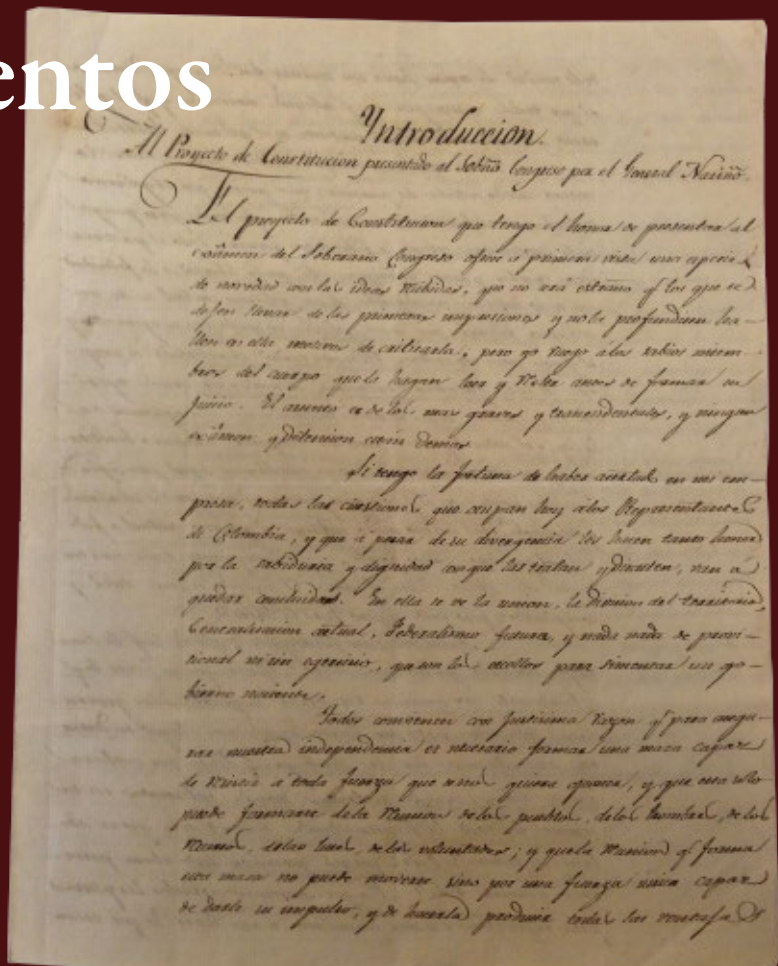 entos
Introduccion.
Al Proyecto de Constitucion presentado al Sobño Congreso por el General Nariño.
El proyecto de Constitucion que tengo el honor de presentar al
exâmen del Soberano Congreso ofrece á primera vista una especie
de novedad con las ideas recibidas, que no será extraño q los que se
dejen llevar de las primeras impresiones y no la profundicen ha-
llen en ella motivos de criticarla, pero yo ruego a los sabios miem-
bros del cuerpo que la hagan leer y releer antes de formar su
juicio. El asunto es de los mas graves y transendentales, y ningun
exâmen y detencion están demas
Si tengo la fortuna de haber acertado en mi em-
presa, todas las cuestiones que ocupan hoy a los Representantes
de Colombia, y que á pesar de su divergencia les hacen tanto honor
por la sabiduria y dignidad con que las tratan y discuten, van á
quedar concluidas. En ella se ve la union, la division del territorio,
Centralizacion actual, Federalismo futuro, y nada nada de provi-
sional ni sin egercicio, que son los escollos para simentar un go-
bierno naciente.
Todos convienen con justisima razon q para asegu-
rar nuestra independencia es necesario formar una masa capaz
de resistir á toda fuerza que se nos quiera oponer, y que esta solo
puede formarse de la reunion de los pueblos, de los hombres, de los
recursos, de las luces, de las voluntades; y que la reunion q forma
esta masa no puede moverse sino por una fuerza unica capaz
de darle su impulso, y de hacerla producir todas las ventajas